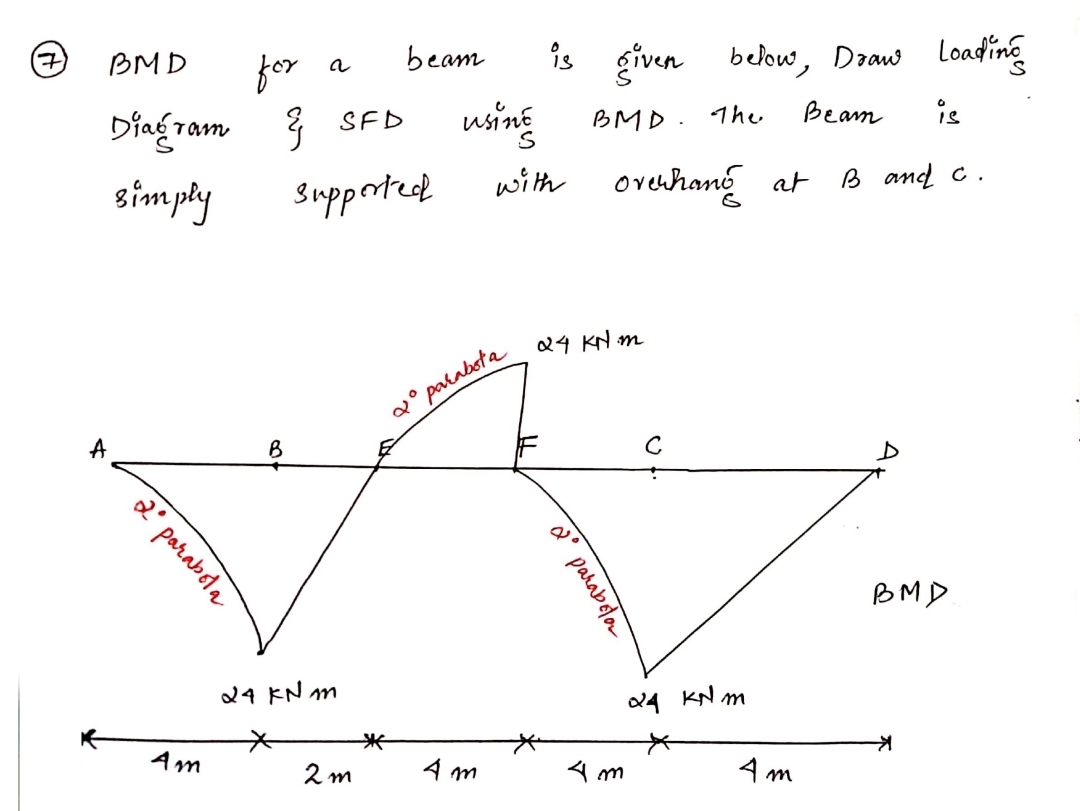 7 BMD for a beam is given below, Draw Loading
Diagram & SFD using BMD. The Beam is
simply supported with overhang at B and C.
24 KN m
2° parabola
A B E F C D
2° parabola
2° parabola
BMD
24 KN m 24 KN m
4 m 2 m 4 m 4 m 4 m